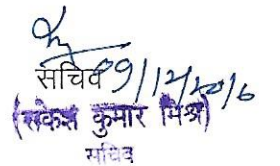 सचिव 09/12/2016
(राकेश कुमार मिश्र)
सचिव